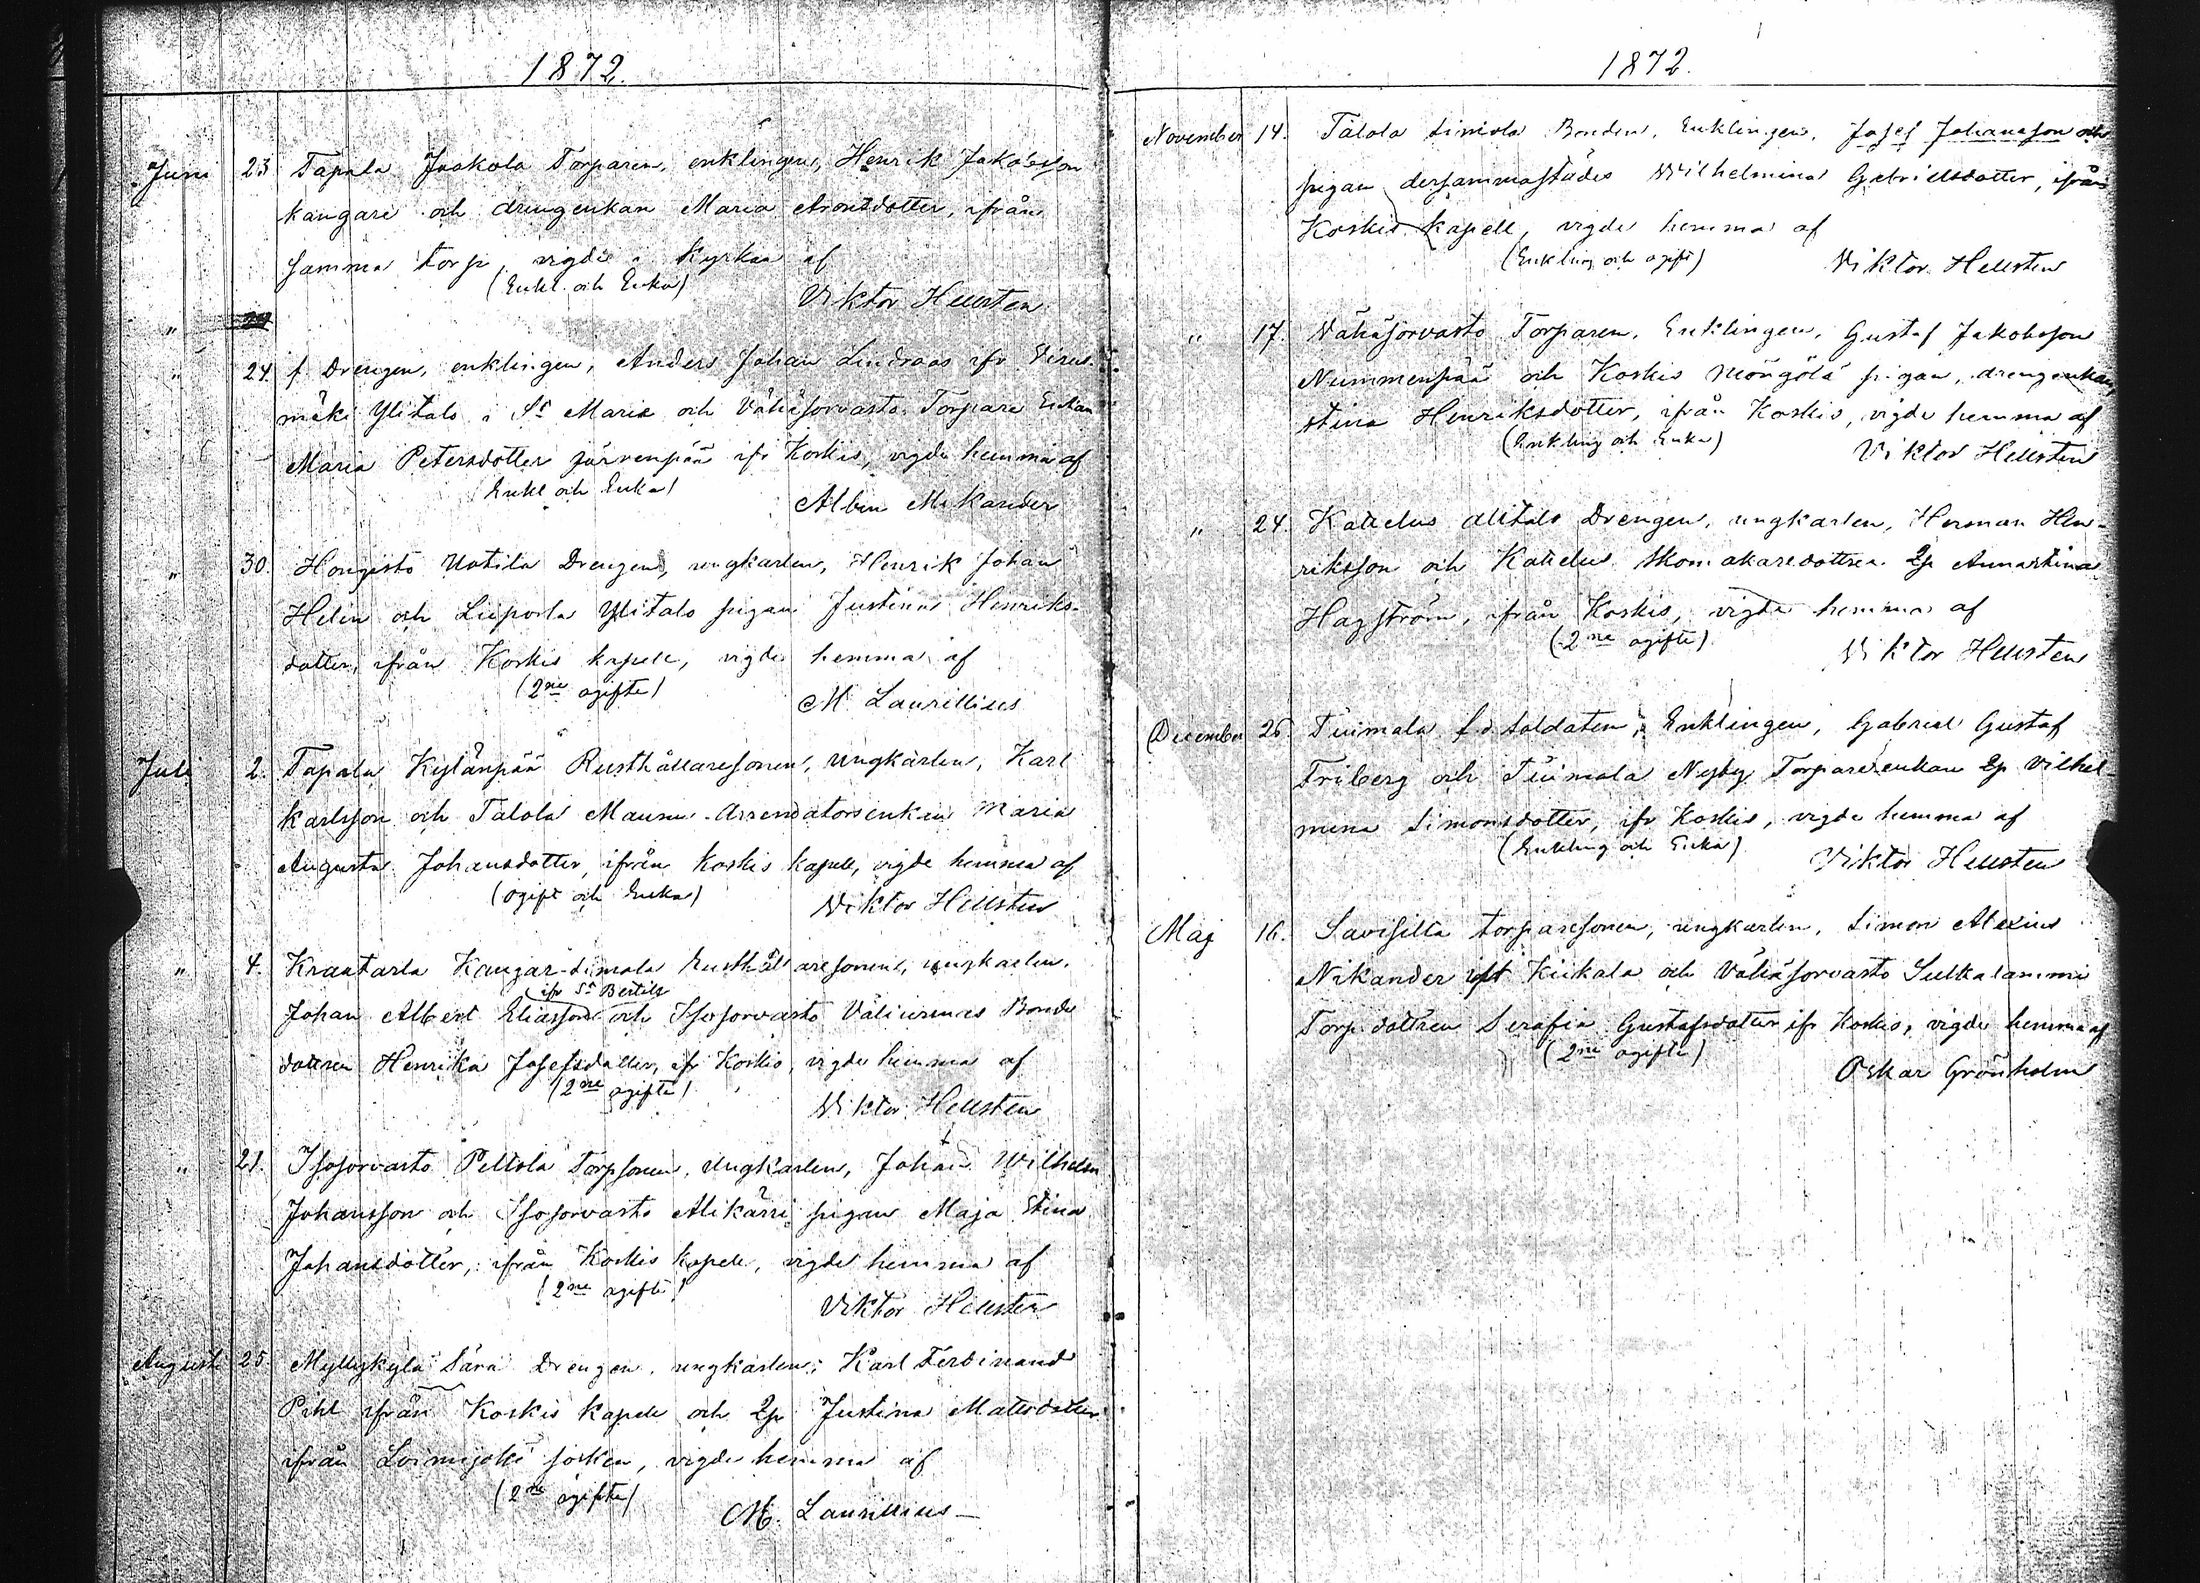 1872.
Juni 23 Tapala Jaakola Torparen, enklingen, Henrik Jakobsson
Kangare och drengenkan Maria Aronsdotter, ifrån
samma torp, vigde i Kyrkan af
(Enkl. och Enka)
Viktor Hellsten
"
" 24. f. Drengen, enklingen, Anders Johan Lindroos ifr
mäki Ylitalo i St Marie och Vähäsorvasto Torpare Enkan
Maria Petersdotter Järvenpää ifr Koskis, vigde hemma af
Enkl och Enka)
Albin Mikander
" 30. Hongisto Uotila Drengen, ungkarlen, Henrik Johan
Helin och Liiporla Ylitalo pigan Justina Henriks-
dotter, ifrån Koskis kapell, vigde hemma af
(2ne ogifte)
M. Laurillius
Juli 2. Tapala Kylänpää Rusthållaresonen, ungkarlen, Karl
Karlsson och Talola Maunu Arrendatorsenkan Maria
Augusta Johansdotter, ifrån Koskis kapell, vigde hemma af
(ogift och Enka)
Viktor Hellsten
" 4. Kraatarla Kangar-Simola Rusthållaresonen, ungkarlen,
ifr St Bertils
Johan Albert Eliasson och Isosorvasto Väliurmas Bonde
dottren Henrika Josefsdotter, ifr Koskis, vigde hemma af
(2ne ogifte)
Viktor Hellsten
" 21. Isosorvasto Peltola Torpsonen, Ungkarlen, Johan Wilhelm
Johansson och Isosorvasto Alikärri pigan Maja Stina
Johansdotter, ifrån Koskis kapell, vigde hemma af
(2ne ogifte)
Viktor Hellsten
August 25. Myllykylä Särä Drengen, ungkarlen, Karl Ferdinand
Pihl ifrån Koskis kapell och Qp Justina Matsdotter
ifrån Loimijoki socken, vigde hemma af
(2ne ogifte)
M. Laurillius
1872.
November 14. Talola Simola Bonden, Enklingen, Josef Johansson och
pigan dersammastädes Wilhelmina Gabrielsdotter, ifrån
Koskis kapell, vigde hemma af
(Enkling och ogift)
Viktor Hellsten
" 17. Vähäsorvasto Torparen, Enklingen, Gustaf Jakobsson
Nummenpää och Koskis Möngölä pigan, drengenkan,
Stina Henriksdotter, ifrån Koskis, vigde hemma af
(Enkling och Enka)
Viktor Hellsten
" 24. Katielus Alitalo Drengen, ungkarlen, Herman Hen-
riksson och Katielus Skomakaredottren Qp Annastina
Hagström, ifrån Koskis, vigde hemma af
(2ne ogifte)
Viktor Hellsten
December 26. Tuimala f d Soldaten, Enklingen, Gabriel Gustaf
Friberg och Tuimala Nyby Torpareenkan Qp Vilhel-
mina Simonsdotter, ifr Koskis, vigde hemma af
(Enkling och Enka)
Viktor Hellsten
Maj 16. Savisilta torparesonen, ungkarlen, Simon Alexius
Nikander Kiikala och Vähäsorvasto Sulkalammi
Torp. dottren Serafia Gustafsdotter ifr Koskis, vigde hemma af
(2ne ogifte)
Oskar Grönholm